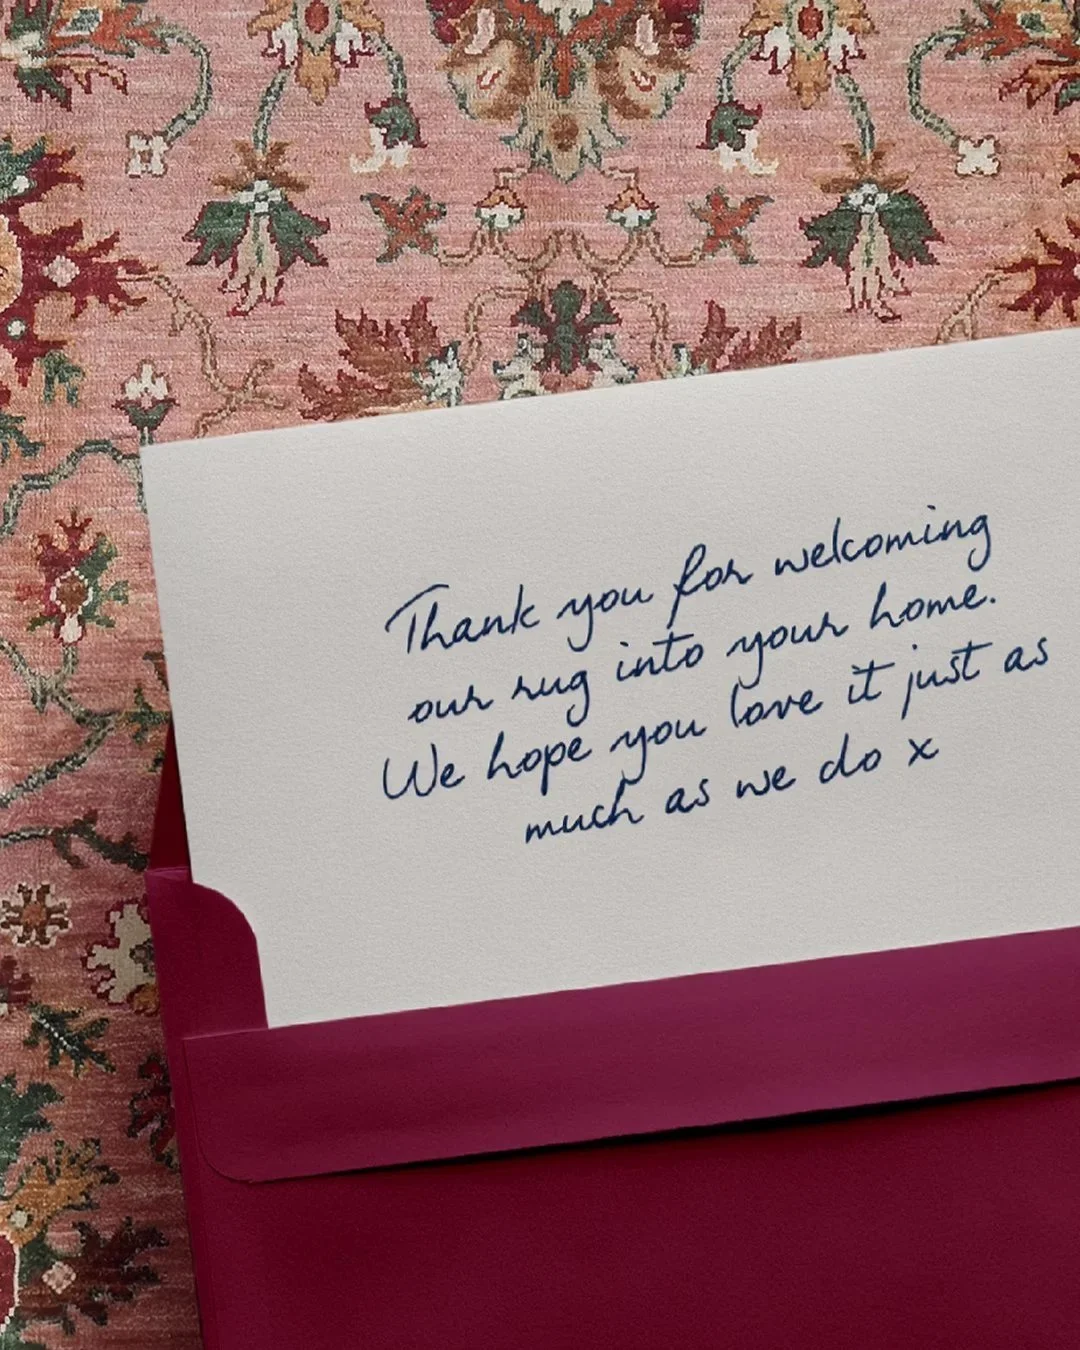 Thank you for welcoming
our rug into your home.
We hope you love it just as
much as we do x